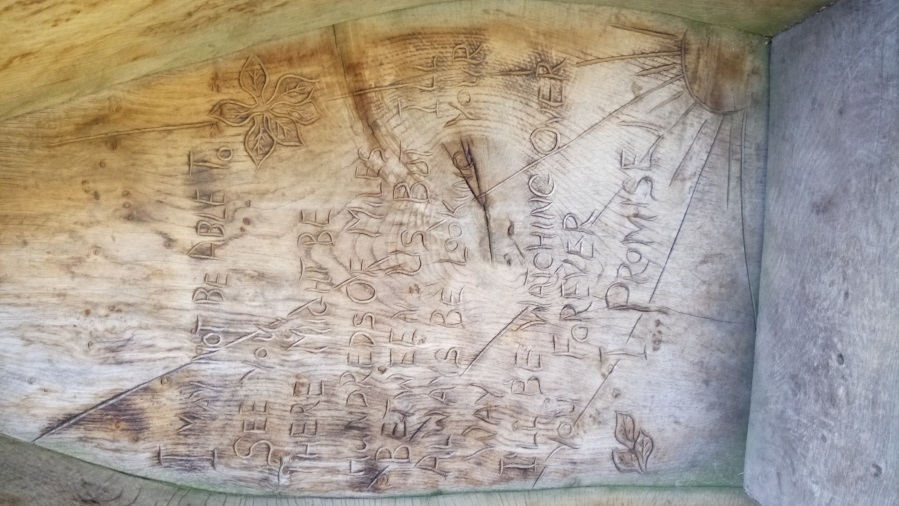 I MAY NOT BE ABLE TO
SEE YOU
THERE MIGHT BE
HUNDREDS OF MILES
BETWEEN US BUT I'LL
ALWAYS BE LOOKING YOUR
WAY
I'LL BE WATCHING OVER
YOU FOREVER
I PROMISE